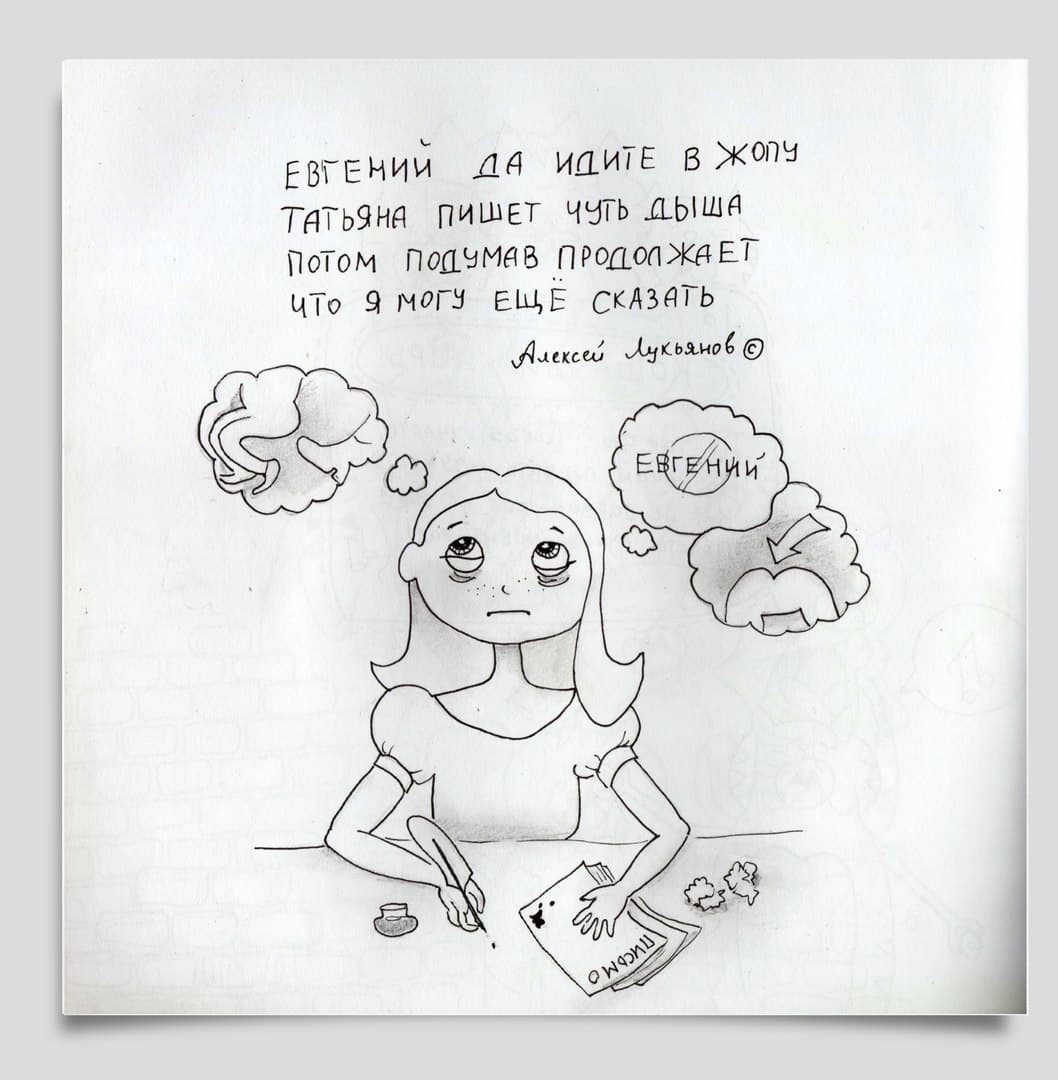 ЕВГЕНИЙ ДА ИДИТЕ В ЖОПУ
ТАТЬЯНА ПИШЕТ ЧУТЬ ДЫША
ПОТОМ ПОДУМАВ ПРОДОЛЖАЕТ
ЧТО Я МОГУ ЕЩЁ СКАЗАТЬ
Алексей Лукьянов ©
ЕВГЕНИЙ
ПИСЬМО